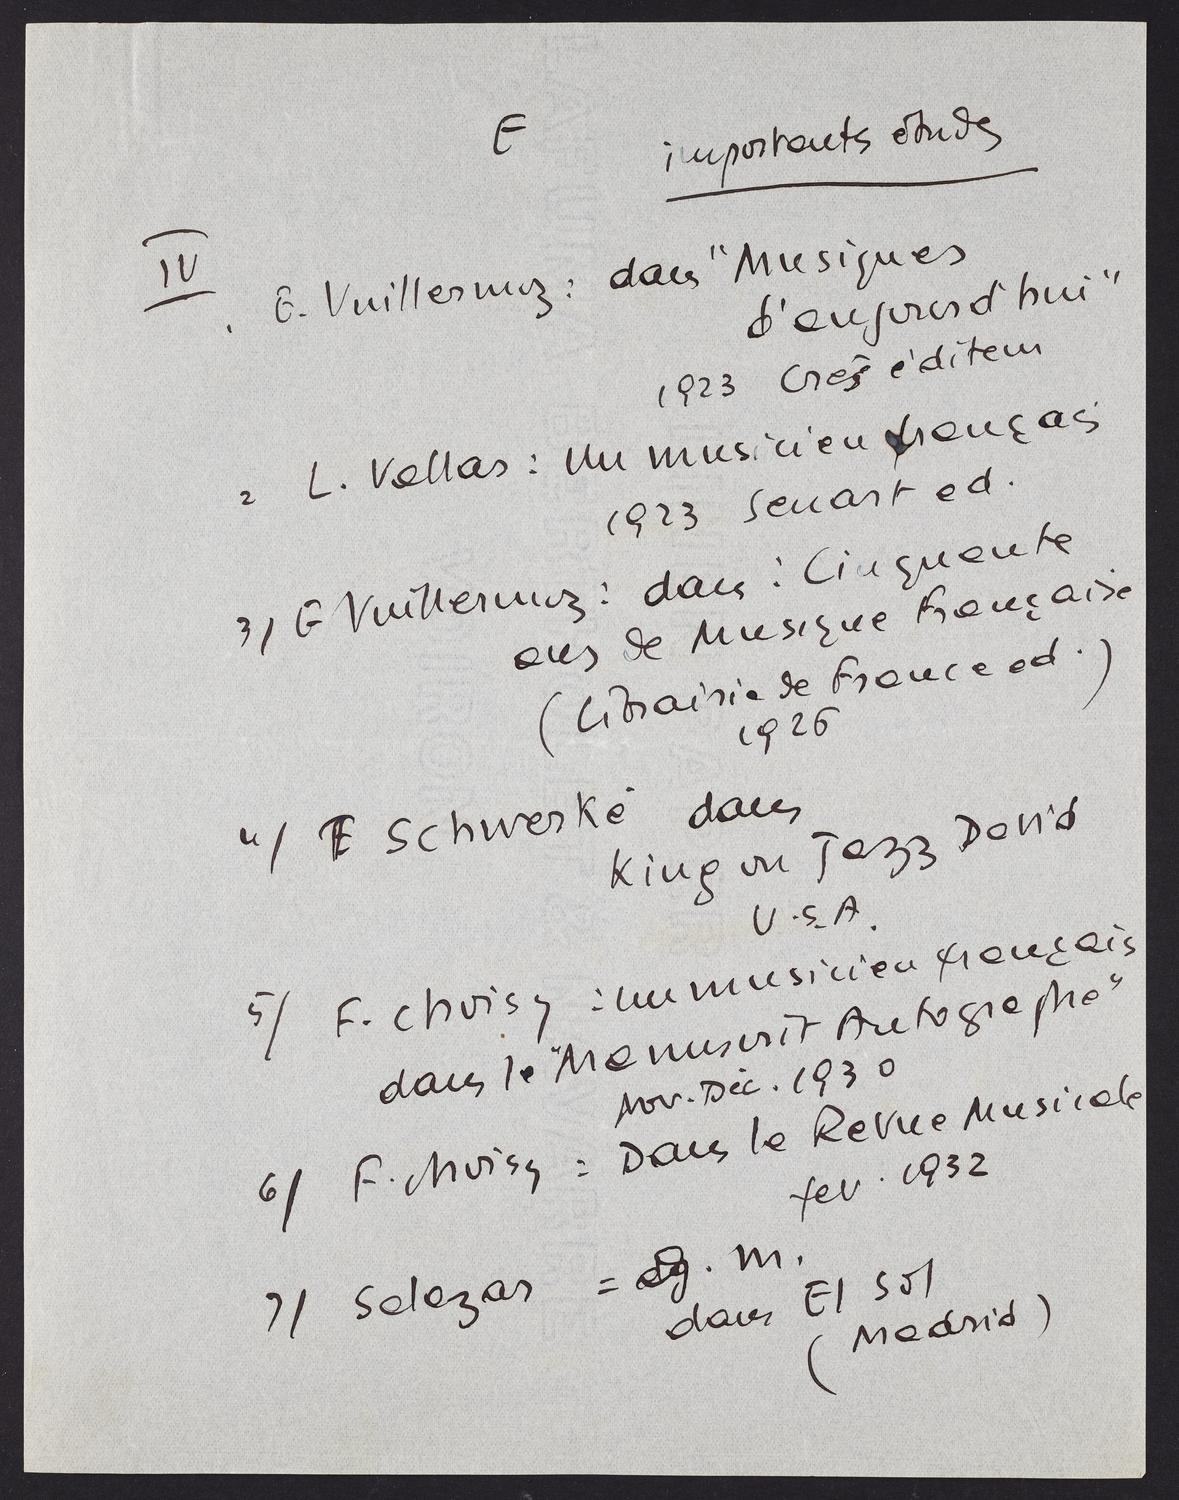 E
importants études
IV
. E. Vuillermoz : dans "Musiques
d'aujourd'hui"
1923 Crès éditeur
2 L. Vallas : Un musicien français
1923 Senart ed.
3/ E Vuillermoz : dans : Cinquante
ans de Musique Française
(Librairie de France ed.)
1926
4/ E Schwerké dans
King on Jazz David
U.S.A.
5/ F. Choisy : un musicien français
dans le "Manuscrit Autographe"
Nov. Déc. 1930
6/ F. Choisy : Dans la Revue Musicale
fev. 1932
7/ Salazar = g. m.
dans El Sol
(Madrid)